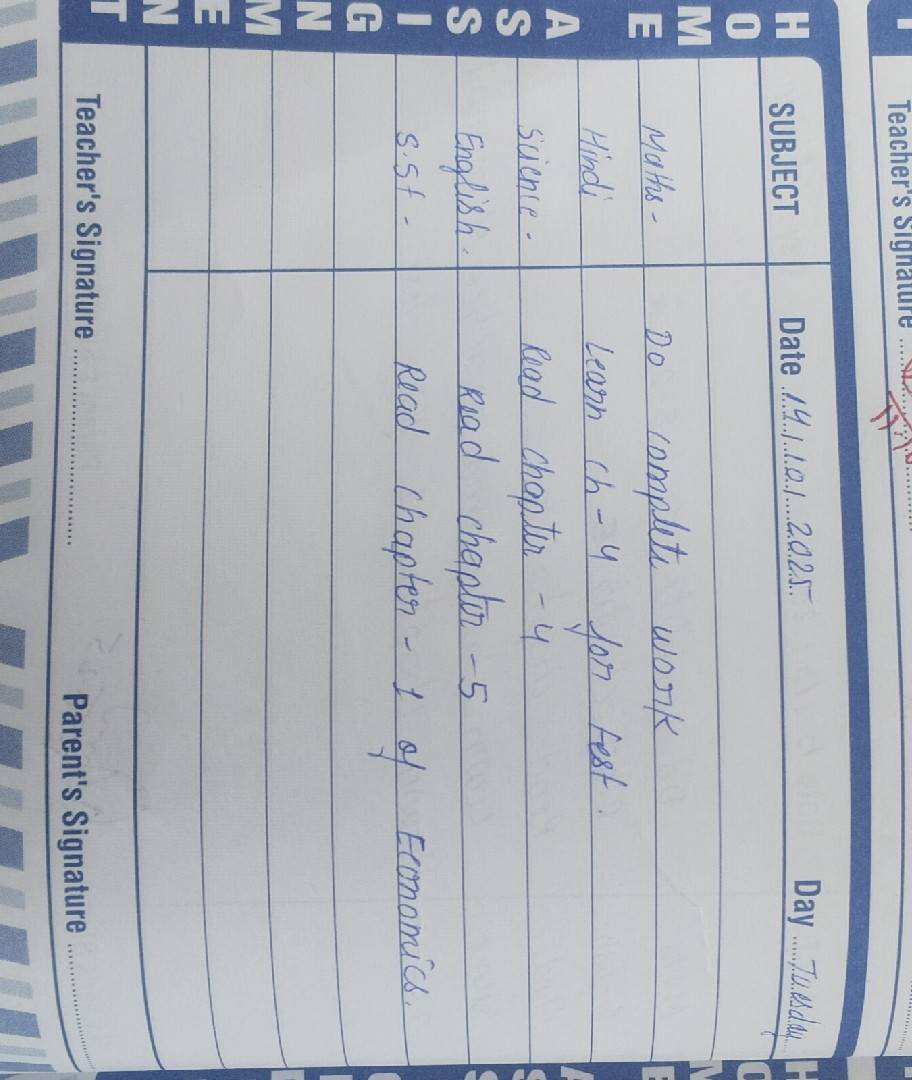 Teacher's Signature
HOME ASSIGNMENT
SUBJECT Date 14/10/2025 Day Tuesday
Maths - Do complete work
Hindi Learn ch-4 for test.
Science - Read chapter -4
English - Read chapter -5
S.St - Read chapter - 1 of Economics.
Teacher's Signature Parent's Signature